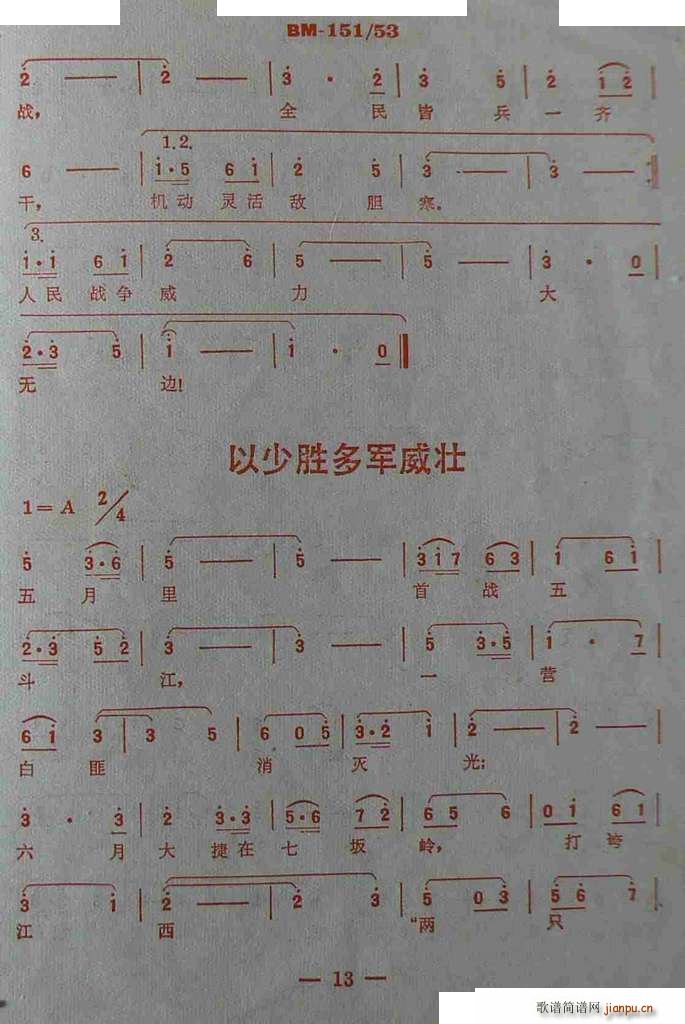 BM-151/53
2 — | 2 — | 3 · 2 | 3 5 | 2 1 2 |
战, 全 民 皆 兵 一 齐
1.2.
6 — | 1·5 6 1 | 2 5 | 3 — | 3 — |
干, 机动 灵活 敌 胆 寒。
3.
1·1 6 1 | 2 6 | 5 — | 5 — | 3 · 0 |
人民 战争 威 力 大
2·3 5 | 1 — | 1 · 0 |
无 边!
以少胜多军威壮
1=A 2/4
5 3·6 | 5 — | 5 — | 3 1 7 6 3 | 1 6 1 |
五 月 里 首 战 五
2·3 5 2 | 3 — | 3 — | 5 3·5 | 1 · 7 |
斗 江, 一 营
6 1 3 | 3 5 | 6 0 5 | 3·2 1 | 2 — | 2 — |
白 匪 消 灭 光;
3 · 3 | 2 3·3 | 5·6 7 2 | 6 5 6 | 0 1 6 1 |
六 月 大 捷在 七 坂 岭, 打 垮
3 1 | 2 — | 2 3 | 5 0 3 | 5 6 7 |
江 西 “两 只
— 13 —
歌谱简谱网 jianpu.cn